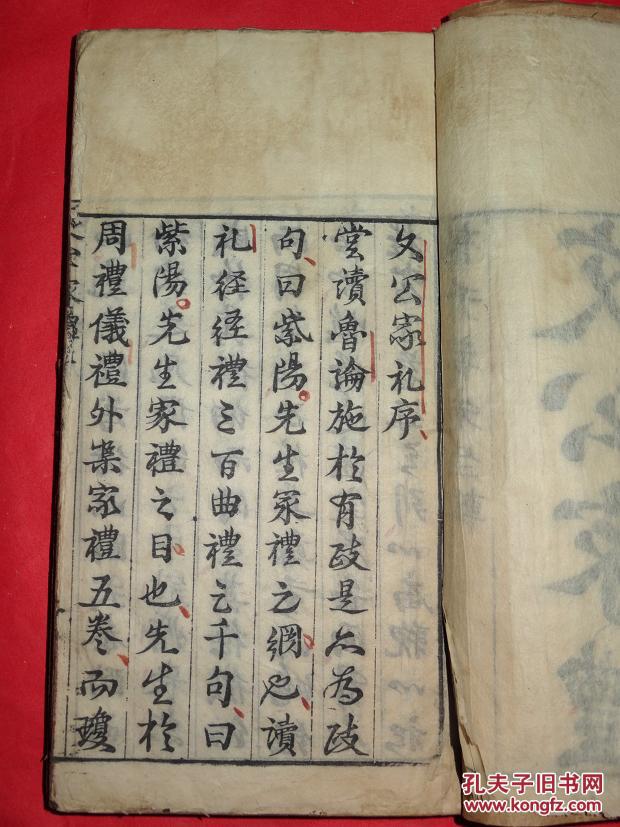 文公家礼序
嘗讀魯論施於有政是亦為政
句曰紫陽先生家禮之綱也讀
礼経経禮三百曲禮三千句曰
紫陽先生家禮之目也先生於
周禮儀禮外集家禮五卷而瓊
孔夫子旧书网
www.kongfz.com